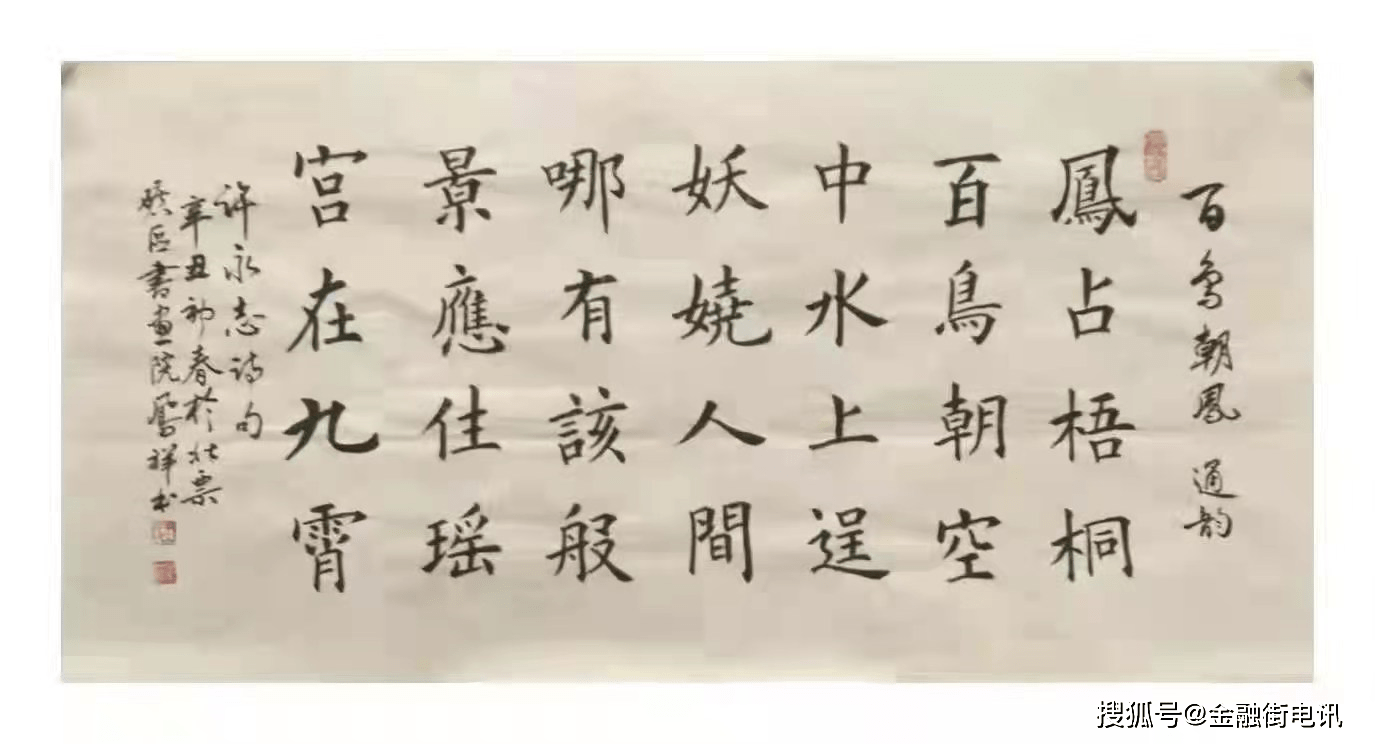 百鳥朝鳳 通韵
鳳占梧桐
百鳥朝空
中水上逞
妖嬈人間
哪有該般
景應住瑶
宮在九霄
许永志诗句
辛丑初春於北票
书画院鳳祥书
搜狐号@金融街电讯